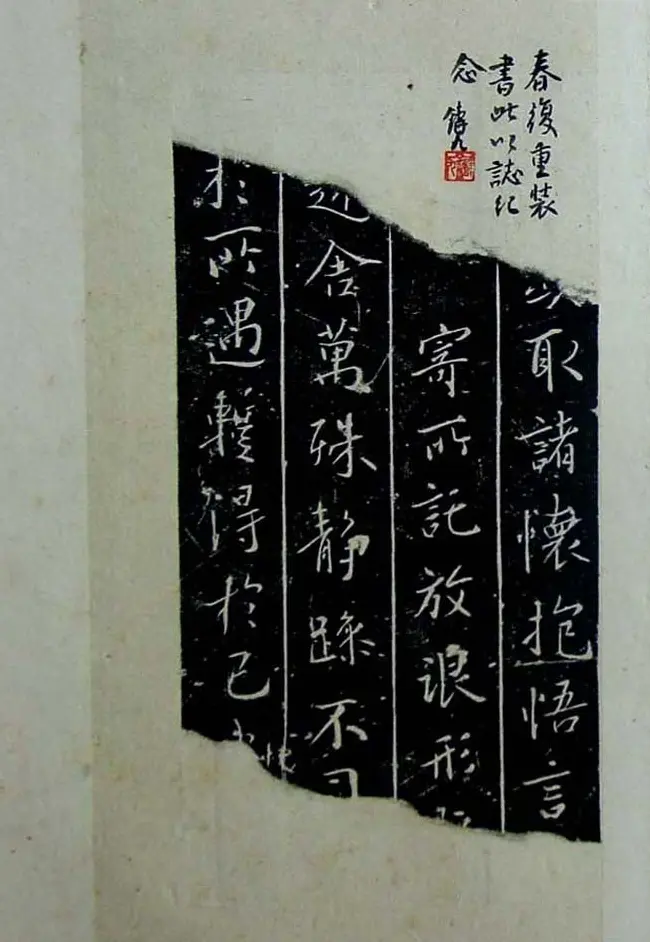 春復重裝
書此以誌紀
念
取諸懷抱悟言
寄所託放浪形
舍萬殊靜躁不同
於所遇暫得於己